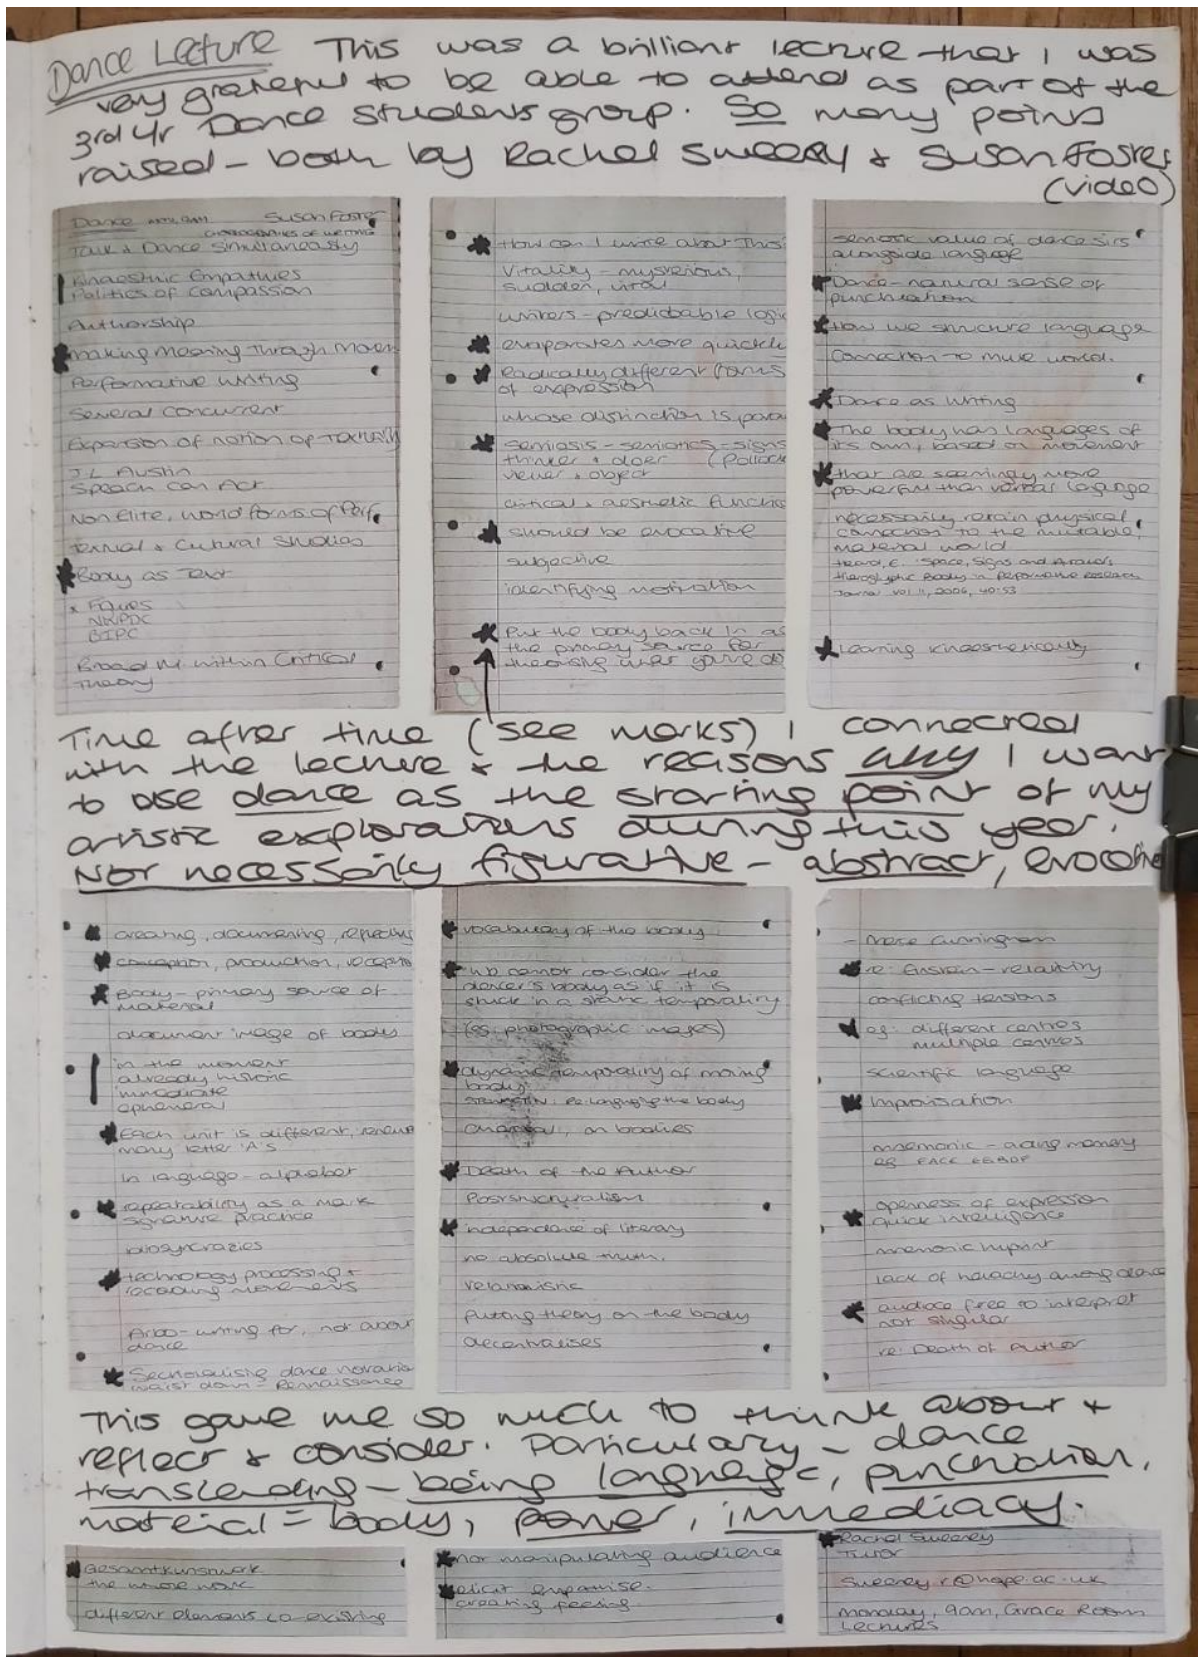 Dance Lecture This was a brilliant lecture that I was
very grateful to be able to attend as part of the
3rd yr Dance Students group. So many points
raised - both by Rachel Sweeny & Susan Foster
(video)
Dance Susan Foster
OF WRITING
Talk & Dance Simultaneously
Kinaesthic Empathies
Politics of Compassion
Authorship
Making Meaning Through Movem
Performative Writing
Several Concurrent
Expansion of notion of Textuality
J.L. Austin
Speach Can Act
Non Elite, World forms of Perf
Textual & Cultural Studies
Body as Text
NWPDC
Broad M. within Critical
Theory
How can I write about this
Vitality - mysterious,
sudden, vital
writers - predictable logic
evaporates more quickly
Radically different forms
of expression
whose distinction is
Semiosis - semiotics - signs
thinker & doer (Pollock
viewer & object
critical & aesthetic function
should be evocative
subjective
identifying motivation
Put the body back in as
the primary source for
theorising
semiotic value of dance sits
alongside language
Dance - natural sense of
punctuation
How we structure language
Connection to mute world.
Dance as Writing
The body has languages of
its own, based on movement
that are seemingly more
powerful than verbal language
necessarily retain physical
connection to the mutable,
material world
Space, Signs and
Hieroglyphic Body in Performance Research
Journal Vol 11, 2006, 40-53
Learning kinaesthetically
Time after time (see marks) I connected
with the lecture & the reasons why I want
to use dance as the starting point of my
artistic explorations during this year.
Not necessarily figurative - abstract, evocative
creating, documenting, reflecting
conception, production, receptio
Body - primary source of
material
document image of body
in the moment
already historic
immediate
ephemeral
Each unit is different,
many letter 'A's
in language - alphabet
repeatability as a mark
signature practice
idiosyncrazies
technology processing &
recording movements
Arbo - writing for, not about
dance
dance notatio
waist down - Rennaissance
vocabulary of the body
We cannot consider the
dancer's body as if it is
stuck in a static temporality
(eg. photographic images)
dynamic temporality of moving
body.
re. languaging the body
on bodies
Death of the Author
Poststructuralism
independence of literary
no absolute truth.
relativistic
putting theory on the body
decentralises
- Merce Cunningham
re: Einstein - relativity
conflicting tensions
eg: different centres
multiple centres
Scientific language
Improvisation
mnemonic - aiding memory
eg. FACE EGBDF
openness of expression
quick intelligence
mnemonic imprint
lack of herachy among dance
audiace free to interpret
not singular
re: Death of Author
This gave me so much to think about &
reflect & consider. Particulary - dance
transcending - being language, punctuation,
material = body, power, immediacy.
Gesamtkunstwerk
the whole work
different elements co-existing
not manipulating audience
elicit empathise.
creating feeling.
Rachel Sweeney
Tutor
sweener@hope.ac.uk
Monday, 9am, Grace Room
Lectures